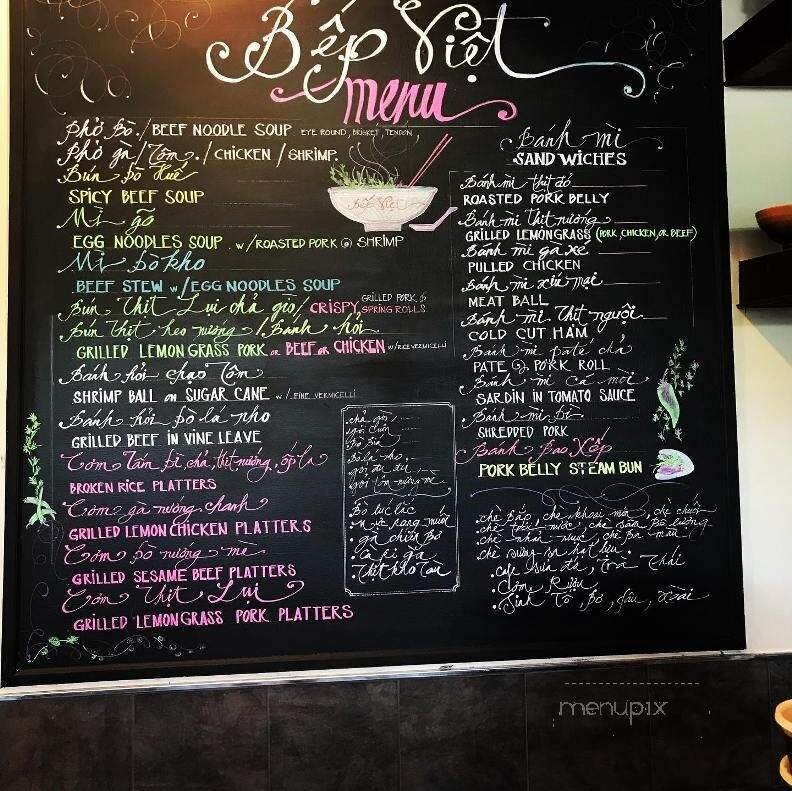 Bếp Việt
menu
Phở Bò. / BEEF NOODLE SOUP EYE ROUND, BRISKET, TENDON
Phở gà / Tôm. / CHICKEN / SHRIMP.
Bún bò Huế
SPICY BEEF SOUP
Mì gõ
EGG NOODLES SOUP. w/ ROASTED PORK @ SHRIMP
Mì bò kho
BEEF STEW w/ EGG NOODLES SOUP
Bún Thịt Lui chả giò / CRISPY SPRING ROLLS GRILLED PORK &
Bún thịt heo nướng / Bánh hỏi
GRILLED LEMONGRASS PORK OR BEEF OR CHICKEN w/ RICE VERMICELLI
Bánh hỏi chạo Tôm
SHRIMP BALL on SUGAR CANE w/ FINE VERMICELLI
Bánh hỏi bò lá nho
GRILLED BEEF IN VINE LEAVE
Cơm Tấm bì, chả, thịt nướng, ốp la
BROKEN RICE PLATTERS
Cơm gà nướng chanh
GRILLED LEMON CHICKEN PLATTERS
Cơm bò nướng mè
GRILLED SESAME BEEF PLATTERS
Cơm Thịt Lui
GRILLED LEMONGRASS PORK PLATTERS
Bếp Việt
chả giò
gỏi cuốn
Bò lá nho
gỏi đu đủ
Bò lúc lắc
Mực rang muối
gà chiên Bơ
Cà ri gà
Thịt kho Tàu
Bánh mì
SANDWICHES
Bánh mì thịt đỏ
ROASTED PORK BELLY
Bánh mì Thịt nướng
GRILLED LEMONGRASS (PORK, CHICKEN, OR BEEF)
Bánh mì gà xé
PULLED CHICKEN
Bánh mì xíu mại
MEAT BALL
Bánh mì Thịt nguội
COLD CUT HAM
Bánh mì patê chả
PATE @ PORK ROLL
Bánh mì cá mòi
SARDIN IN TOMATO SAUCE
Bánh mì Bì
SHREDDED PORK
Bánh Bao Xếp
PORK BELLY STEAM BUN
chè Bắp, chè khoai môn, chè chuối
chè sương sa hạt lựu
cafe sữa đá, trà Thái
Cơm Rượu
Sinh Tố, bơ, dâu, xoài
menupix